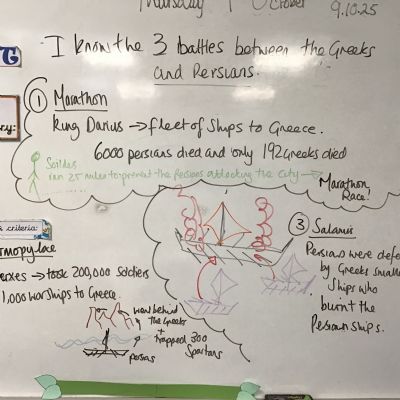 Thursday October
9.10.25
I know the 3 battles between the Greeks
and Persians.
① Marathon
King Darius → fleet of ships to Greece.
6000 persians died and only 192 Greeks died
ran 25 miles to prevent the Persians attacking the City → Marathon
Race!
criteria:
rmopylae
erxes → took 200,000 Soldiers
1,000 warships to Greece.
went behind
the Greeks
+
trapped 300
Spartans
persias
③ Salamis
Persians were defe
by Greeks smalle
Ships who
burnt the
Persian ships.